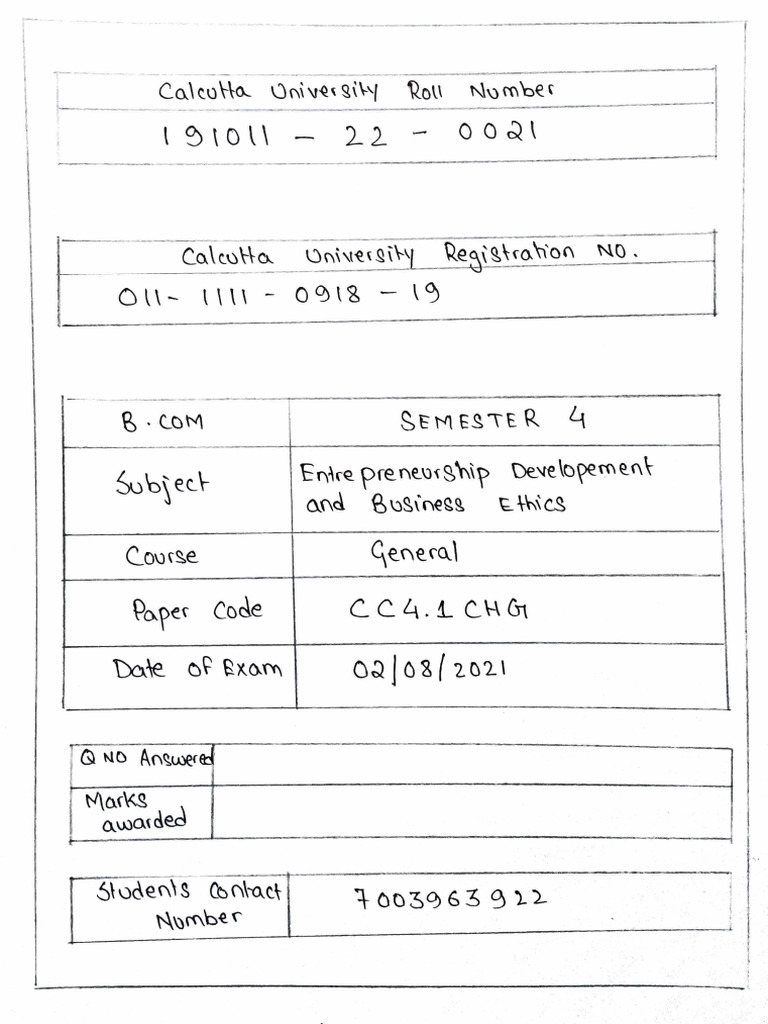 Calcutta University Roll Number
191011 - 22 - 0021
Calcutta University Registration NO.
011- 1111 - 0918 - 19
B.COM SEMESTER 4
Subject Entrepreneurship Developement
and Business Ethics
Course General
Paper Code CC4.1 CHG
Date of Exam 02/08/2021
Q NO Answered
Marks
awarded
Students Contact
Number 7003963922